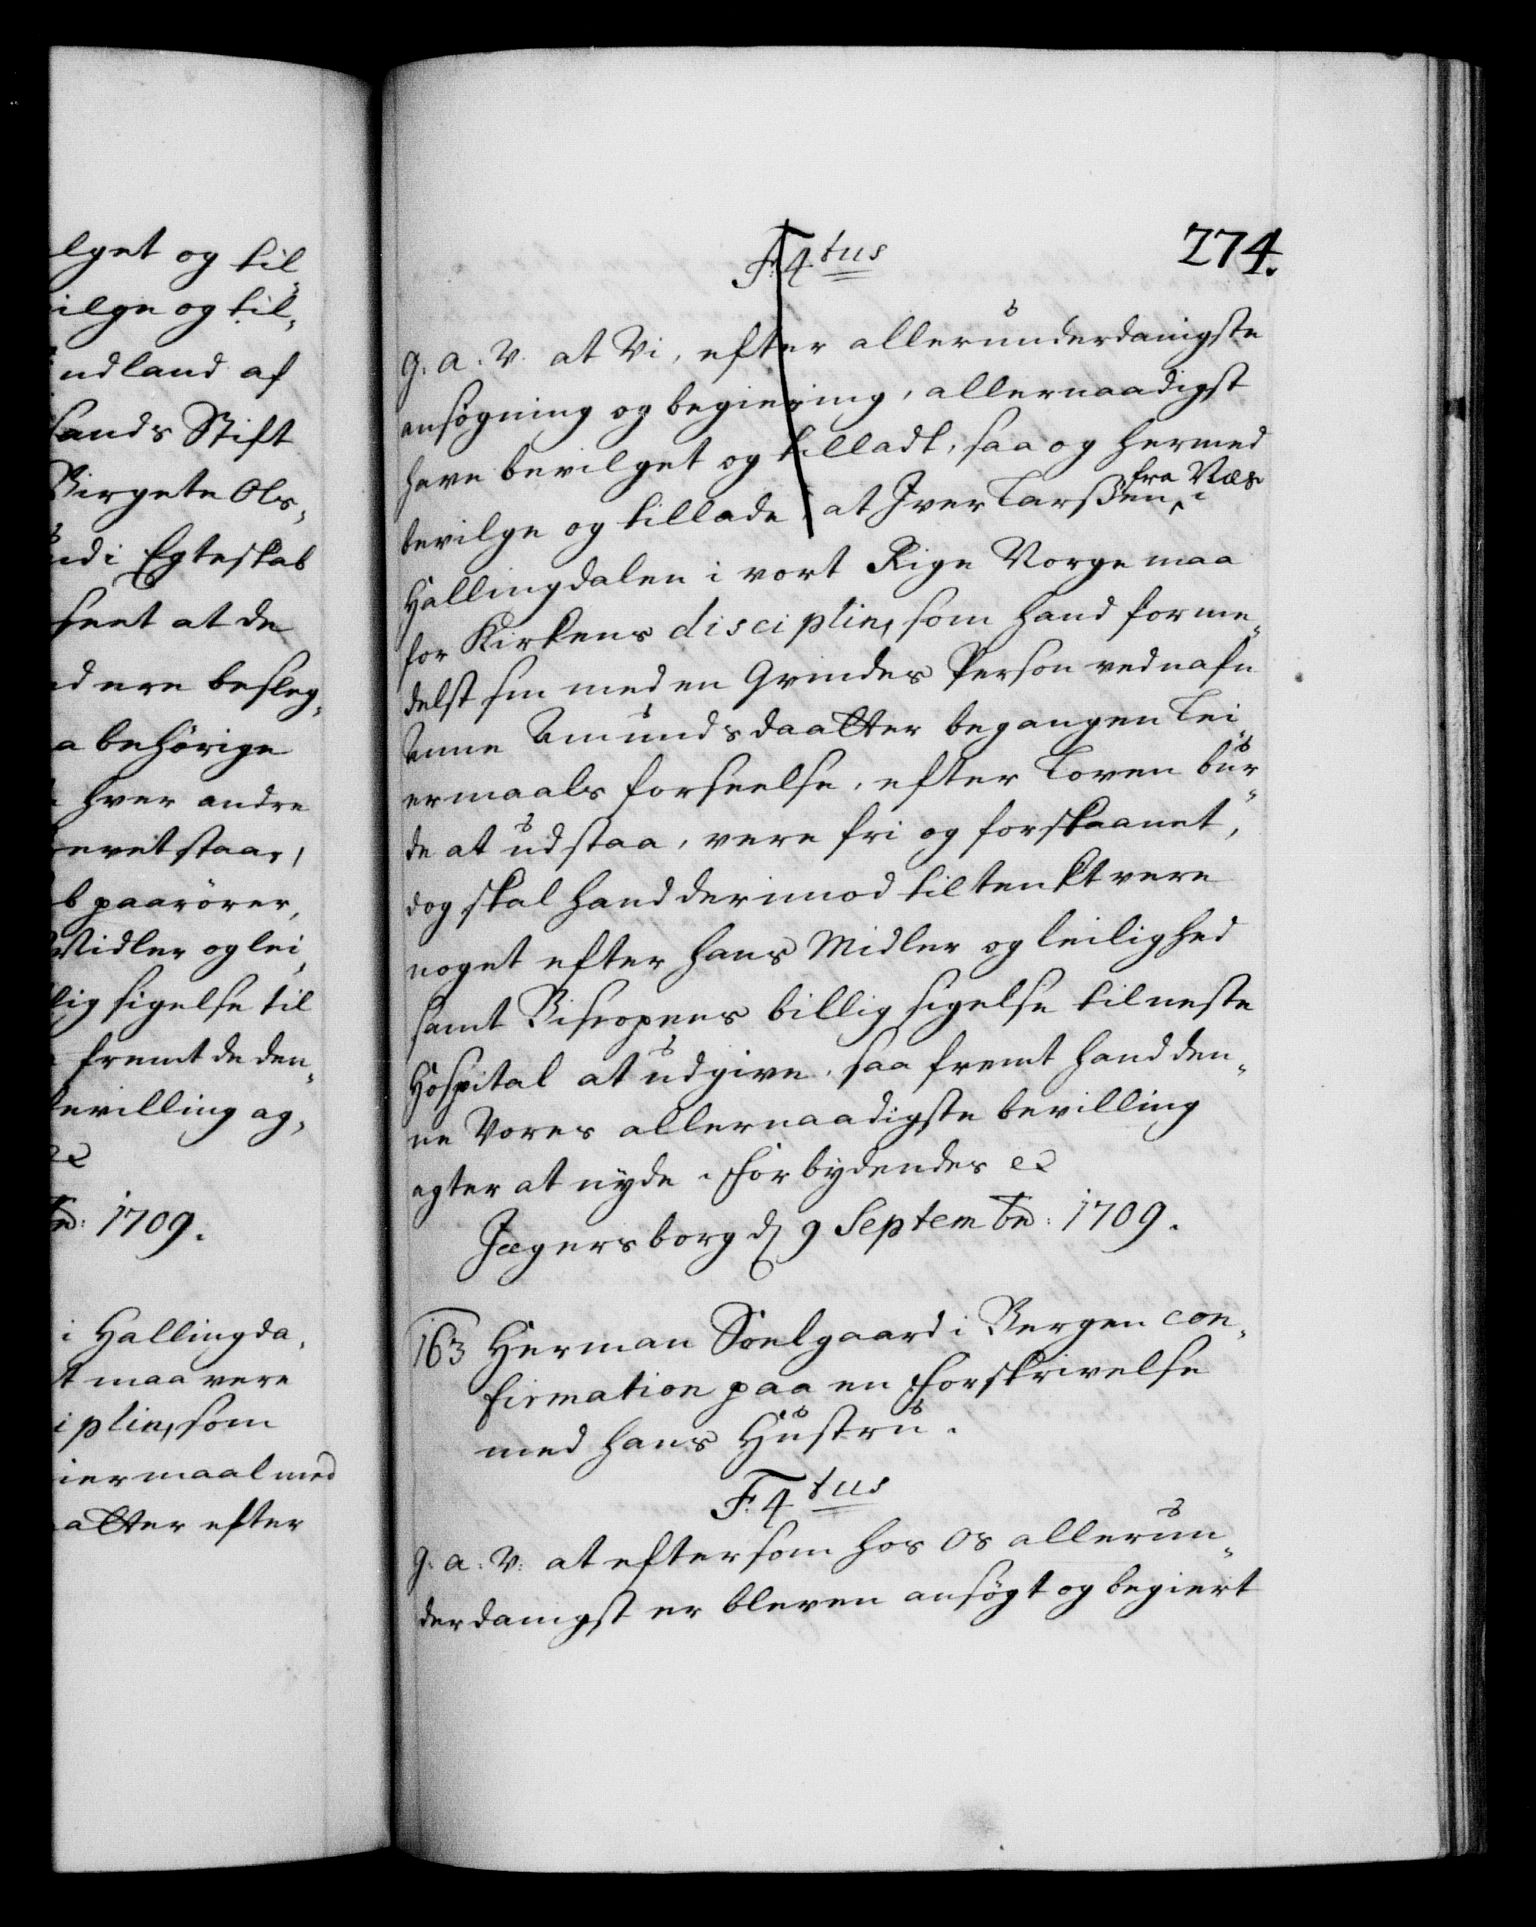 lget og til„
ilge og til„
indland af
sands Stift
Birgete Ols„
ind i Egteskab
seet at de
ad ere besleg„
a behörige
hver andre
krevet staar,
b paarörer,
Midler og lei„
llig sigelse til
fremt de den„
bevilling ag„
ec
br: 1709.
i Hallingda„
t maa vere
iplin, som
iermaal med
atter efter
274.
F. 4tus
G. a. V. at Vi, efter allerunderdanigste
ansögning og begiering, allernaadigst
have bevilget og tilladt, saa og hermed
bevilge og tillade, at Iver Larßen fra Næs i
Hallingdalen i vort Rige Norge maa
for Kirkens disciplin, som hand forme„
delst sin med en Qvindes Person ved nafn
Anne Amundsdaatter begangen Lei„
ermaals forseelse, efter Loven bur„
de at udstaa, vere fri og forskaanet,
dog skal hand derimod tiltenkt vere
noget efter hans Midler og leilighed
samt Biscopens billig sigelse til neste
Hospital at udgive, saa fremt hand den„
ne Vores allernaadigste bevilling
agter at nyde. Forbydendes ec
Jægersborg d 9 Septembr: 1709.
163 Herman Soelgaard i Bergen con„
firmation paa en Forskrivelse
med hans Hustru.
F. 4tus
G. a. V: at eftersom hos Os allerun„
derdanigst er bleven ansögt og begiert